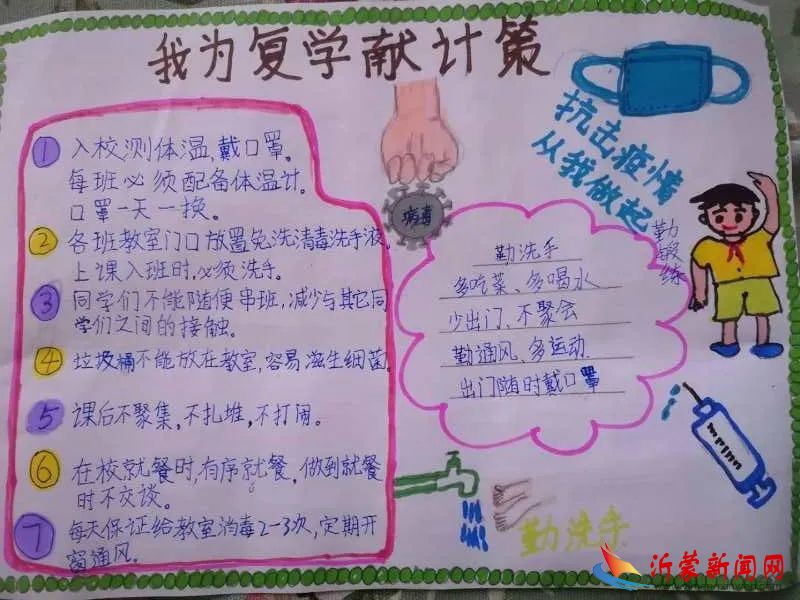 我为复学献计策
抗击疫情
从我做起
1 入校,测体温,戴口罩。
每班必须配备体温计.
口罩一天一换。
2 各班教室门口放置免洗清毒洗手液.
上课入班时,必须洗手。
3 同学们不能随便串班,减少与其它同
学们之间的接触。
4 垃圾桶不能放在教室,容易滋生细菌.
5 课后不聚集,不扎堆,不打闹。
6 在校就餐时,有序就餐,做到就餐
时不交谈。
7 每天保证给教室消毒2-3次,定期开
窗通风。
病毒
勤洗手
多吃菜、多喝水
少出门、不聚会
勤通风、多运动.
出门随时戴口罩
勤锻练
勤洗手
沂蒙新闻网